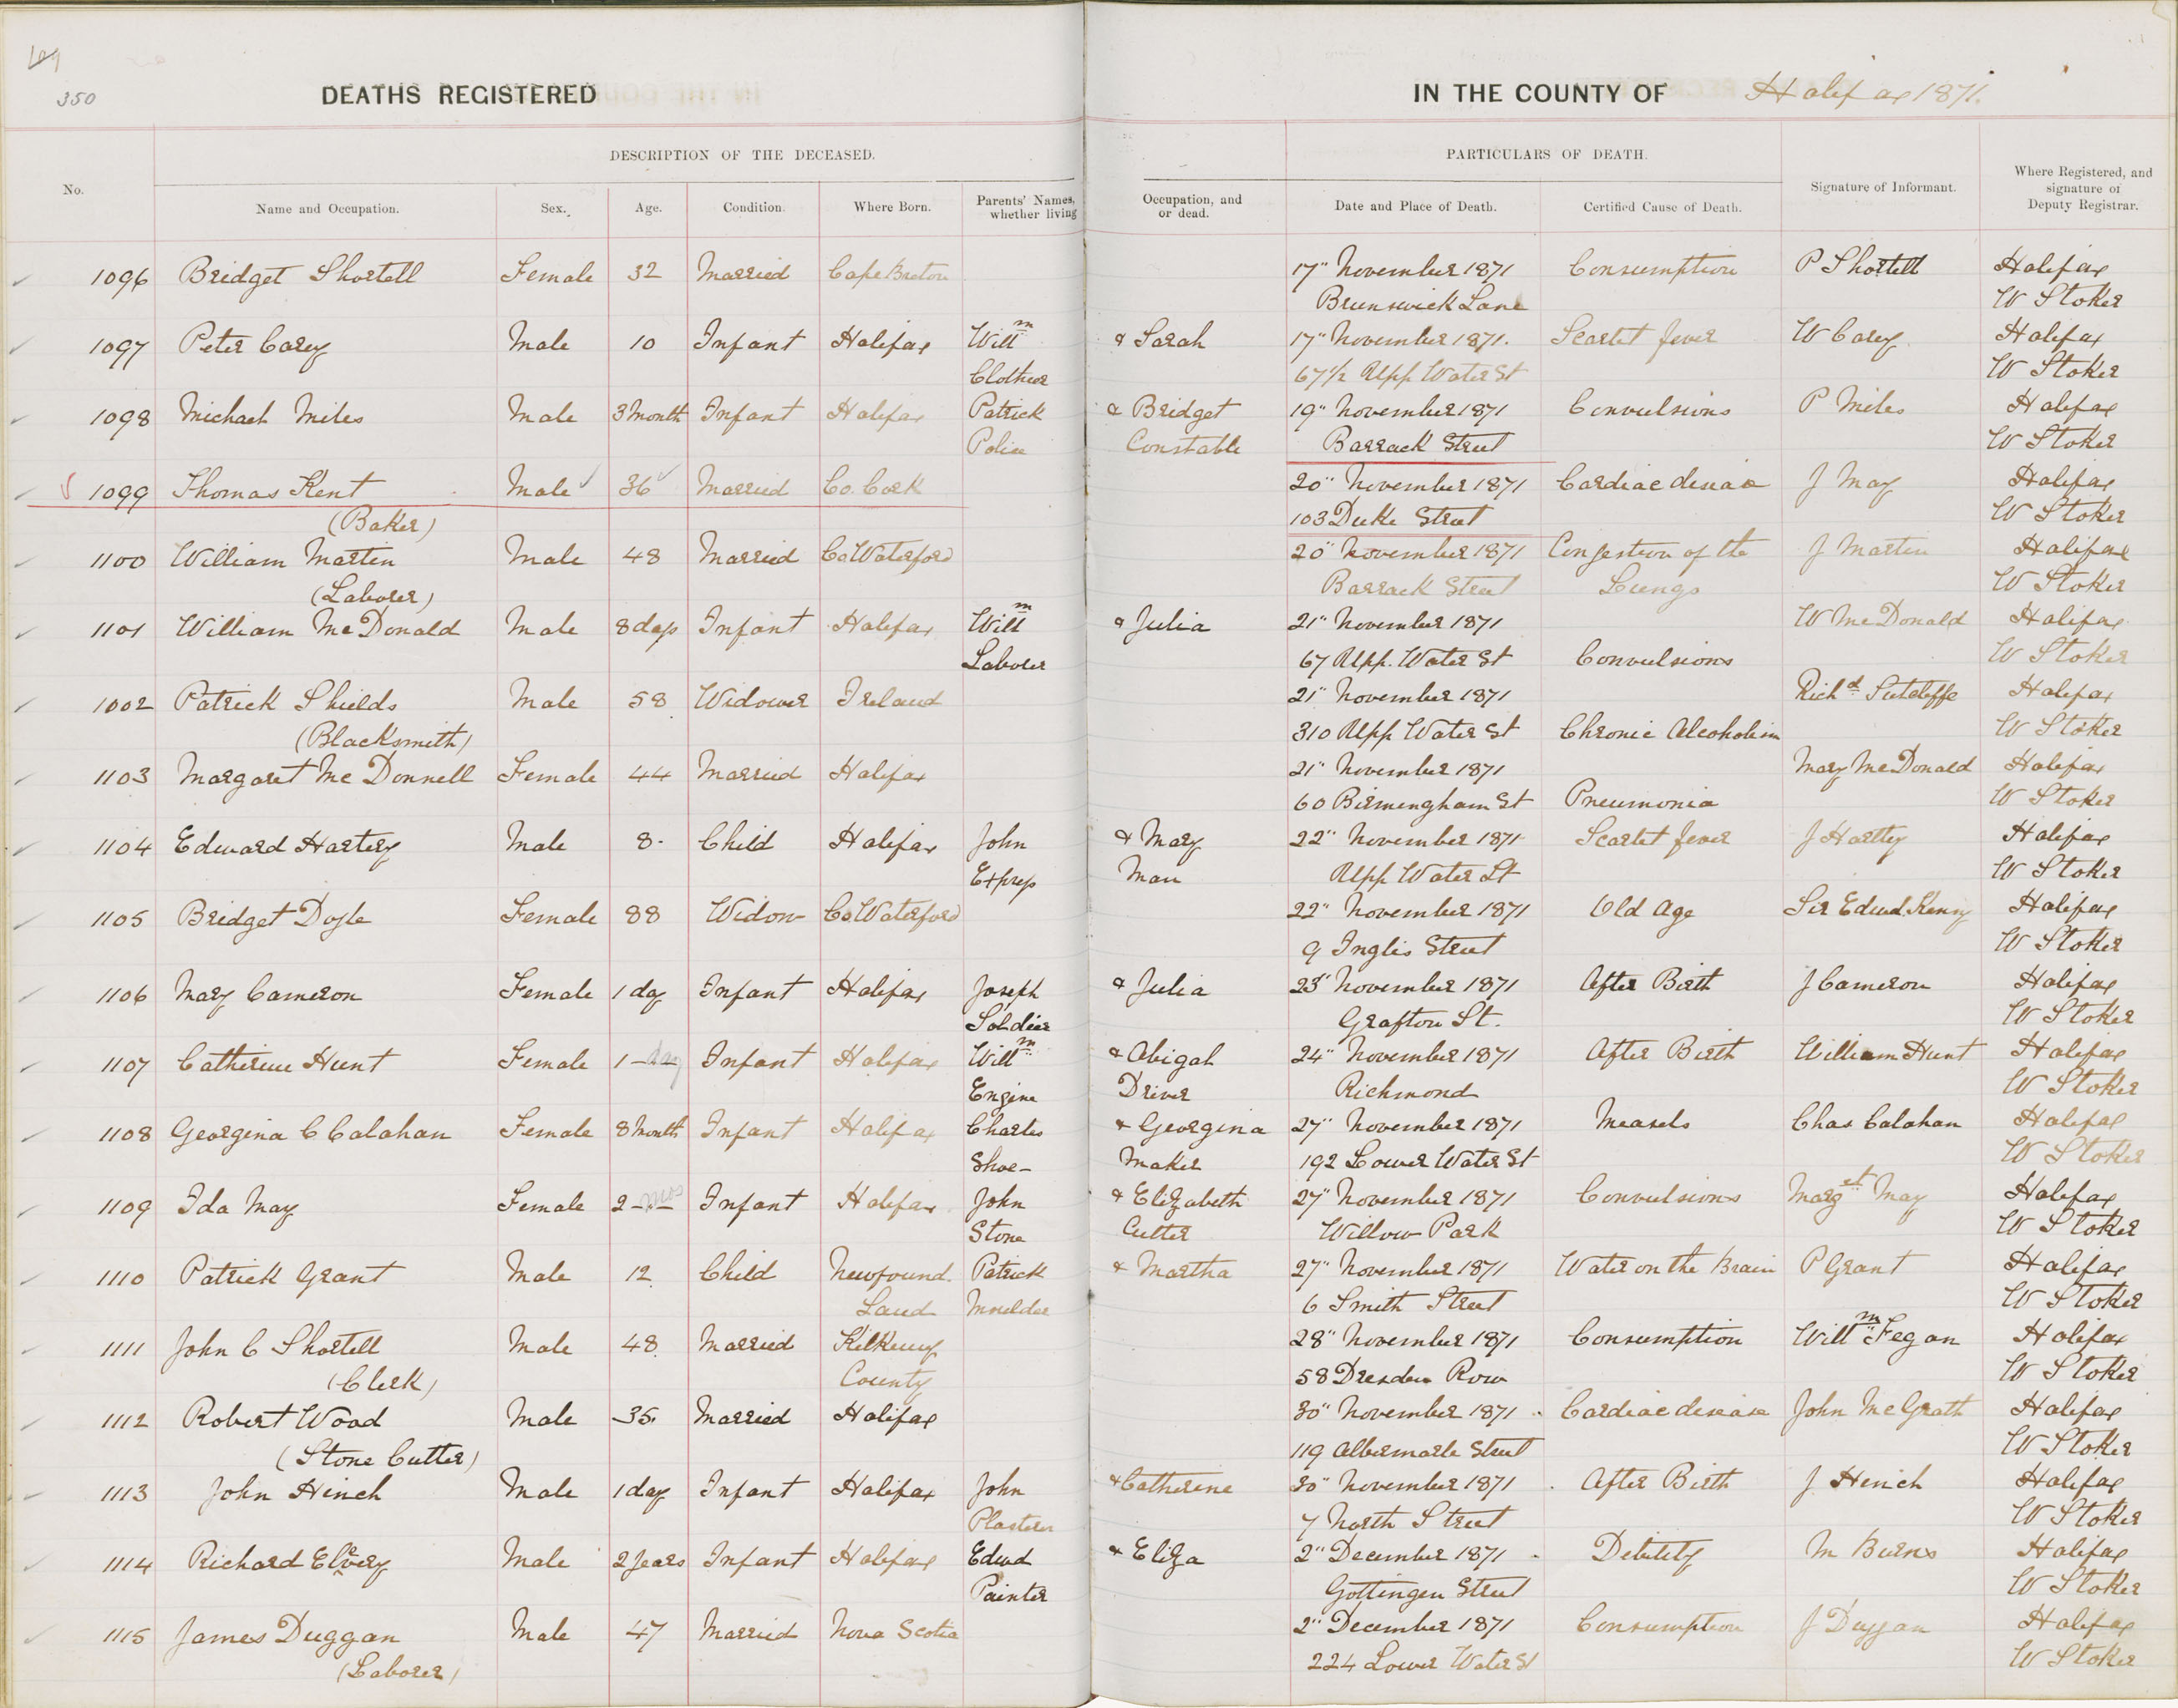 109
350
DEATHS REGISTERED IN THE COUNTY OF Halifax 1871.
DESCRIPTION OF THE DECEASED. PARTICULARS OF DEATH.
No. Name and Occupation. Sex. Age. Condition. Where Born. Parents' Names, whether living Occupation, and or dead. Date and Place of Death. Certified Cause of Death. Signature of Informant. Where Registered, and signature of Deputy Registrar.
1096 Bridget Shortell Female 32 Married Cape Breton 17" November 1871 Consumption P Shortell Halifax
Brunswick Lane W Stoker
1097 Peter Carey Male 10 Infant Halifax Willm & Sarah 17" November 1871. Scarlet fever W Carey Halifax
Clothier 67 1/2 Upp Water St W Stoker
1098 Michael Miles Male 3 Month Infant Halifax Patrick & Bridget 19" November 1871 Convulsions P Miles Halifax
Police Constable Barrack Street W Stoker
1099 Thomas Kent Male 36 Married Co. Cork 20" November 1871 Cardiac disease J May Halifax
(Baker) 103 Duke Street W Stoker
1100 William Martin Male 48 Married Co Waterford 20" November 1871 Congestion of the J Martin Halifax
(Laborer) Barrack Street Lungs W Stoker
1101 William McDonald Male 8 days Infant Halifax Willm & Julia 21" November 1871 W McDonald Halifax
Laborer 67 Upp. Water St Convulsions W Stoker
1002 Patrick Shields Male 58 Widower Ireland 21" November 1871 Richd Sutcliffe Halifax
(Blacksmith) 310 Upp Water St Chronic Alcoholism W Stoker
1103 Margaret McDonnell Female 44 Married Halifax 21" November 1871 Mary McDonald Halifax
60 Birmingham St Pneumonia W Stoker
1104 Edward Hartery Male 8. Child Halifax John & Mary 22" November 1871 Scarlet fever J Hartley Halifax
Express Man Upp Water St W Stoker
1105 Bridget Doyle Female 88 Widow Co Waterford 22" November 1871 Old Age Sir Edwd. Kenny Halifax
9 Inglis Street W Stoker
1106 Mary Cameron Female 1 day Infant Halifax Joseph & Julia 23" November 1871 After Birth J Cameron Halifax
Soldier Grafton St. W Stoker
1107 Catherine Hunt Female 1 - day Infant Halifax Willm & Abigah 24" November 1871 After Birth William Hunt Halifax
Engine Driver Richmond W Stoker
1108 Georgina C Calahan Female 8 Month Infant Halifax Charles & Georgina 27" November 1871 Measels Chas Calahan Halifax
Shoe- Maker 192 Lower Water St W Stoker
1109 Ida May Female 2 - mos Infant Halifax John & Elizabeth 27" November 1871 Convulsions Marget May Halifax
Stone Cutter Willow Park W Stoker
1110 Patrick Grant Male 12 Child Newfound. Patrick & Martha 27" November 1871 Water on the Brain P Grant Halifax
Land Moulder 6 Smith Street W Stoker
1111 John C Shortell Male 48 Married Kilkenny 28" November 1871 Consumption Willm Fegan Halifax
(Clerk) County 58 Dresden Row W Stoker
1112 Robert Wood Male 35. Married Halifax 30" November 1871 Cardiac disease John McGrath Halifax
(Stone Cutter) 119 Albermarle Street W Stoker
1113 John Hinch Male 1 day Infant Halifax John & Catherine 30" November 1871 After Birth J Hinch Halifax
Plasterer 7 North Street W Stoker
1114 Richard Elvery Male 2 Years Infant Halifax Edwd & Eliza 2" December 1871 Debility M Burns Halifax
Painter Gottingen Street W Stoker
1115 James Duggan Male 47 Married Nova Scotia 2" December 1871 Consumption J Duggan Halifax
(Laborer) 224 Lower Water St W Stoker